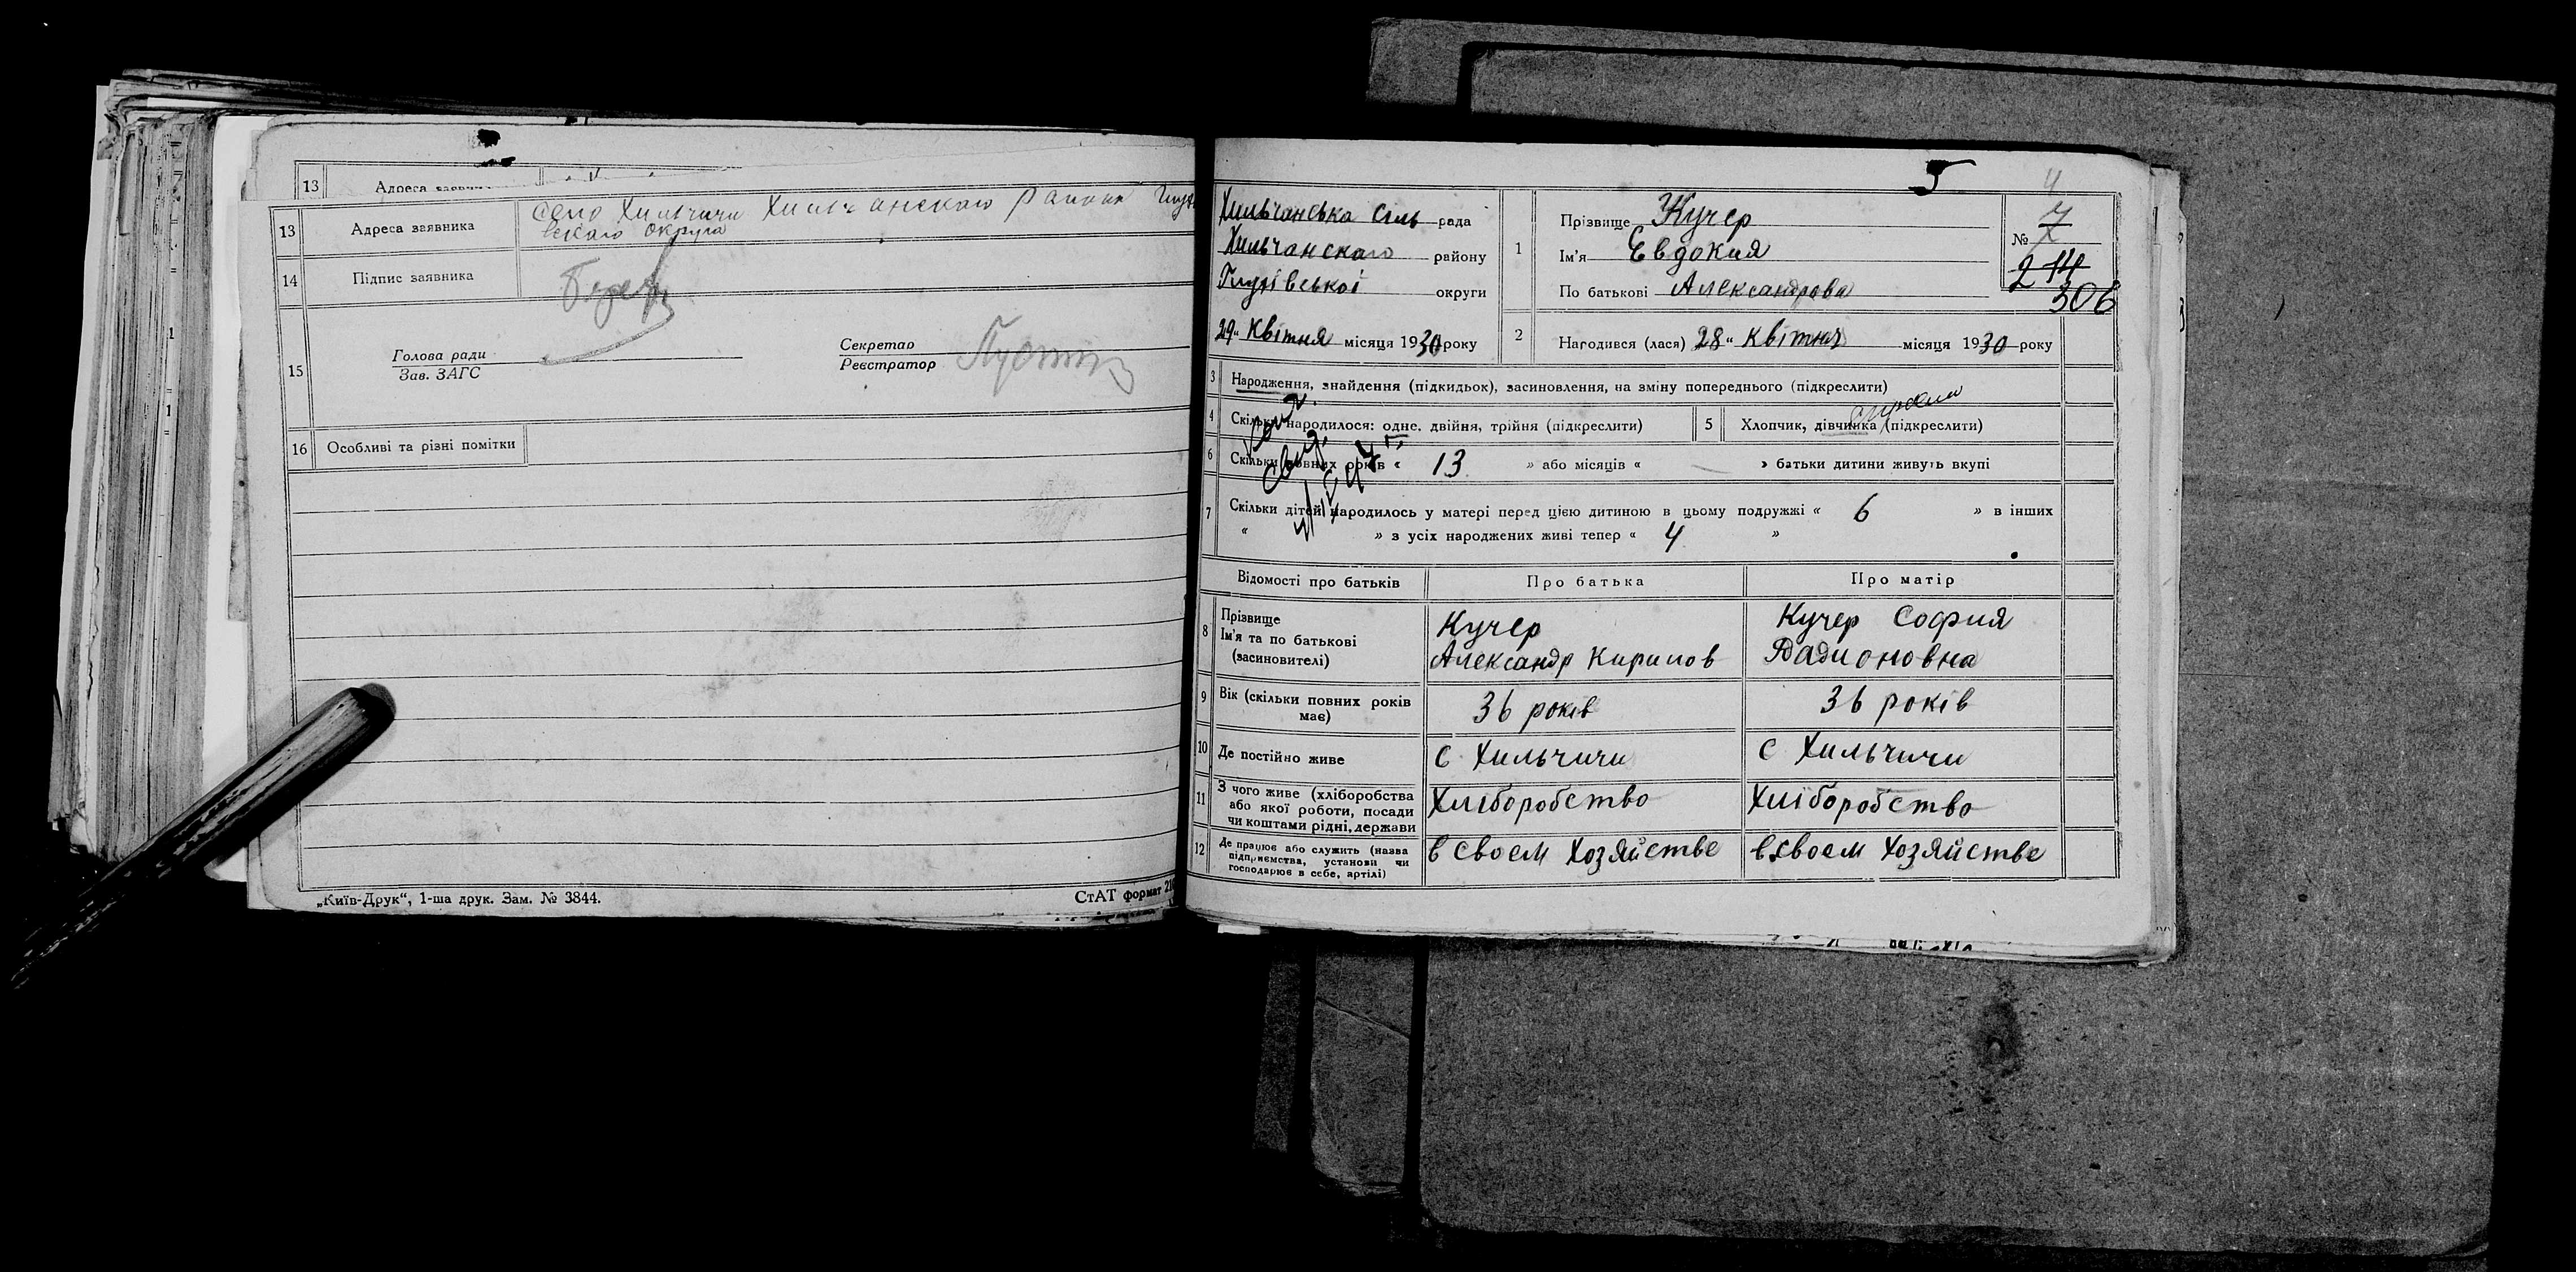 13 Адреса заявника
13 Адреса заявника село Хильчичи Хильчанского района Глухо
вского округа
14 Підпис заявника
15 Голова ради
Зав. ЗАГС
Секретар
Реєстратор
16 Особливі та різні помітки
„Київ-Друк“, 1-ша друк. Зам. № 3844.
СтАТ формат 210
5
4
Хильчанська сіль рада
Хильчанского району
Глухівської округи
29 „ Квітня місяця 1930 року
1 Прізвище Кучер
Ім'я Евдокия
По батькові Александрова
№ 7
214
306
2 Народився (лася) 28 „ Квітня місяця 1930 року
3 Народження, знайдення (підкидьок), засиновлення, на зміну попереднього (підкреслити)
4 Скільки народилося: одне, двійня, трійня (підкреслити)
5 Хлопчик, дівчинка (підкреслити)
6 Скільки повних років « 13 » або місяців « — » батьки дитини живуть вкупі
7 Скільки дітей народилось у матері перед цією дитиною в цьому подружжі « 6 » в інших
« » з усіх народжених живі тепер « 4 »
Відомості про батьків Про батька Про матір
8 Прізвище
Ім'я та по батькові
(засиновителі)
Кучер
Александр Кирилов
Кучер София
Радионовна
9 Вік (скільки повних років
має)
36 років
36 років
10 Де постійно живе
с Хильчичи
с Хильчичи
11 З чого живе (хліборобства
або якої роботи, посади
чи коштами рідні, держави
Хліборобство
Хліборобство
12 Де працює або служить (назва
підприємства, установи чи
господарює в себе, артілі)
в своем хозяйстве
в своем хозяйстве